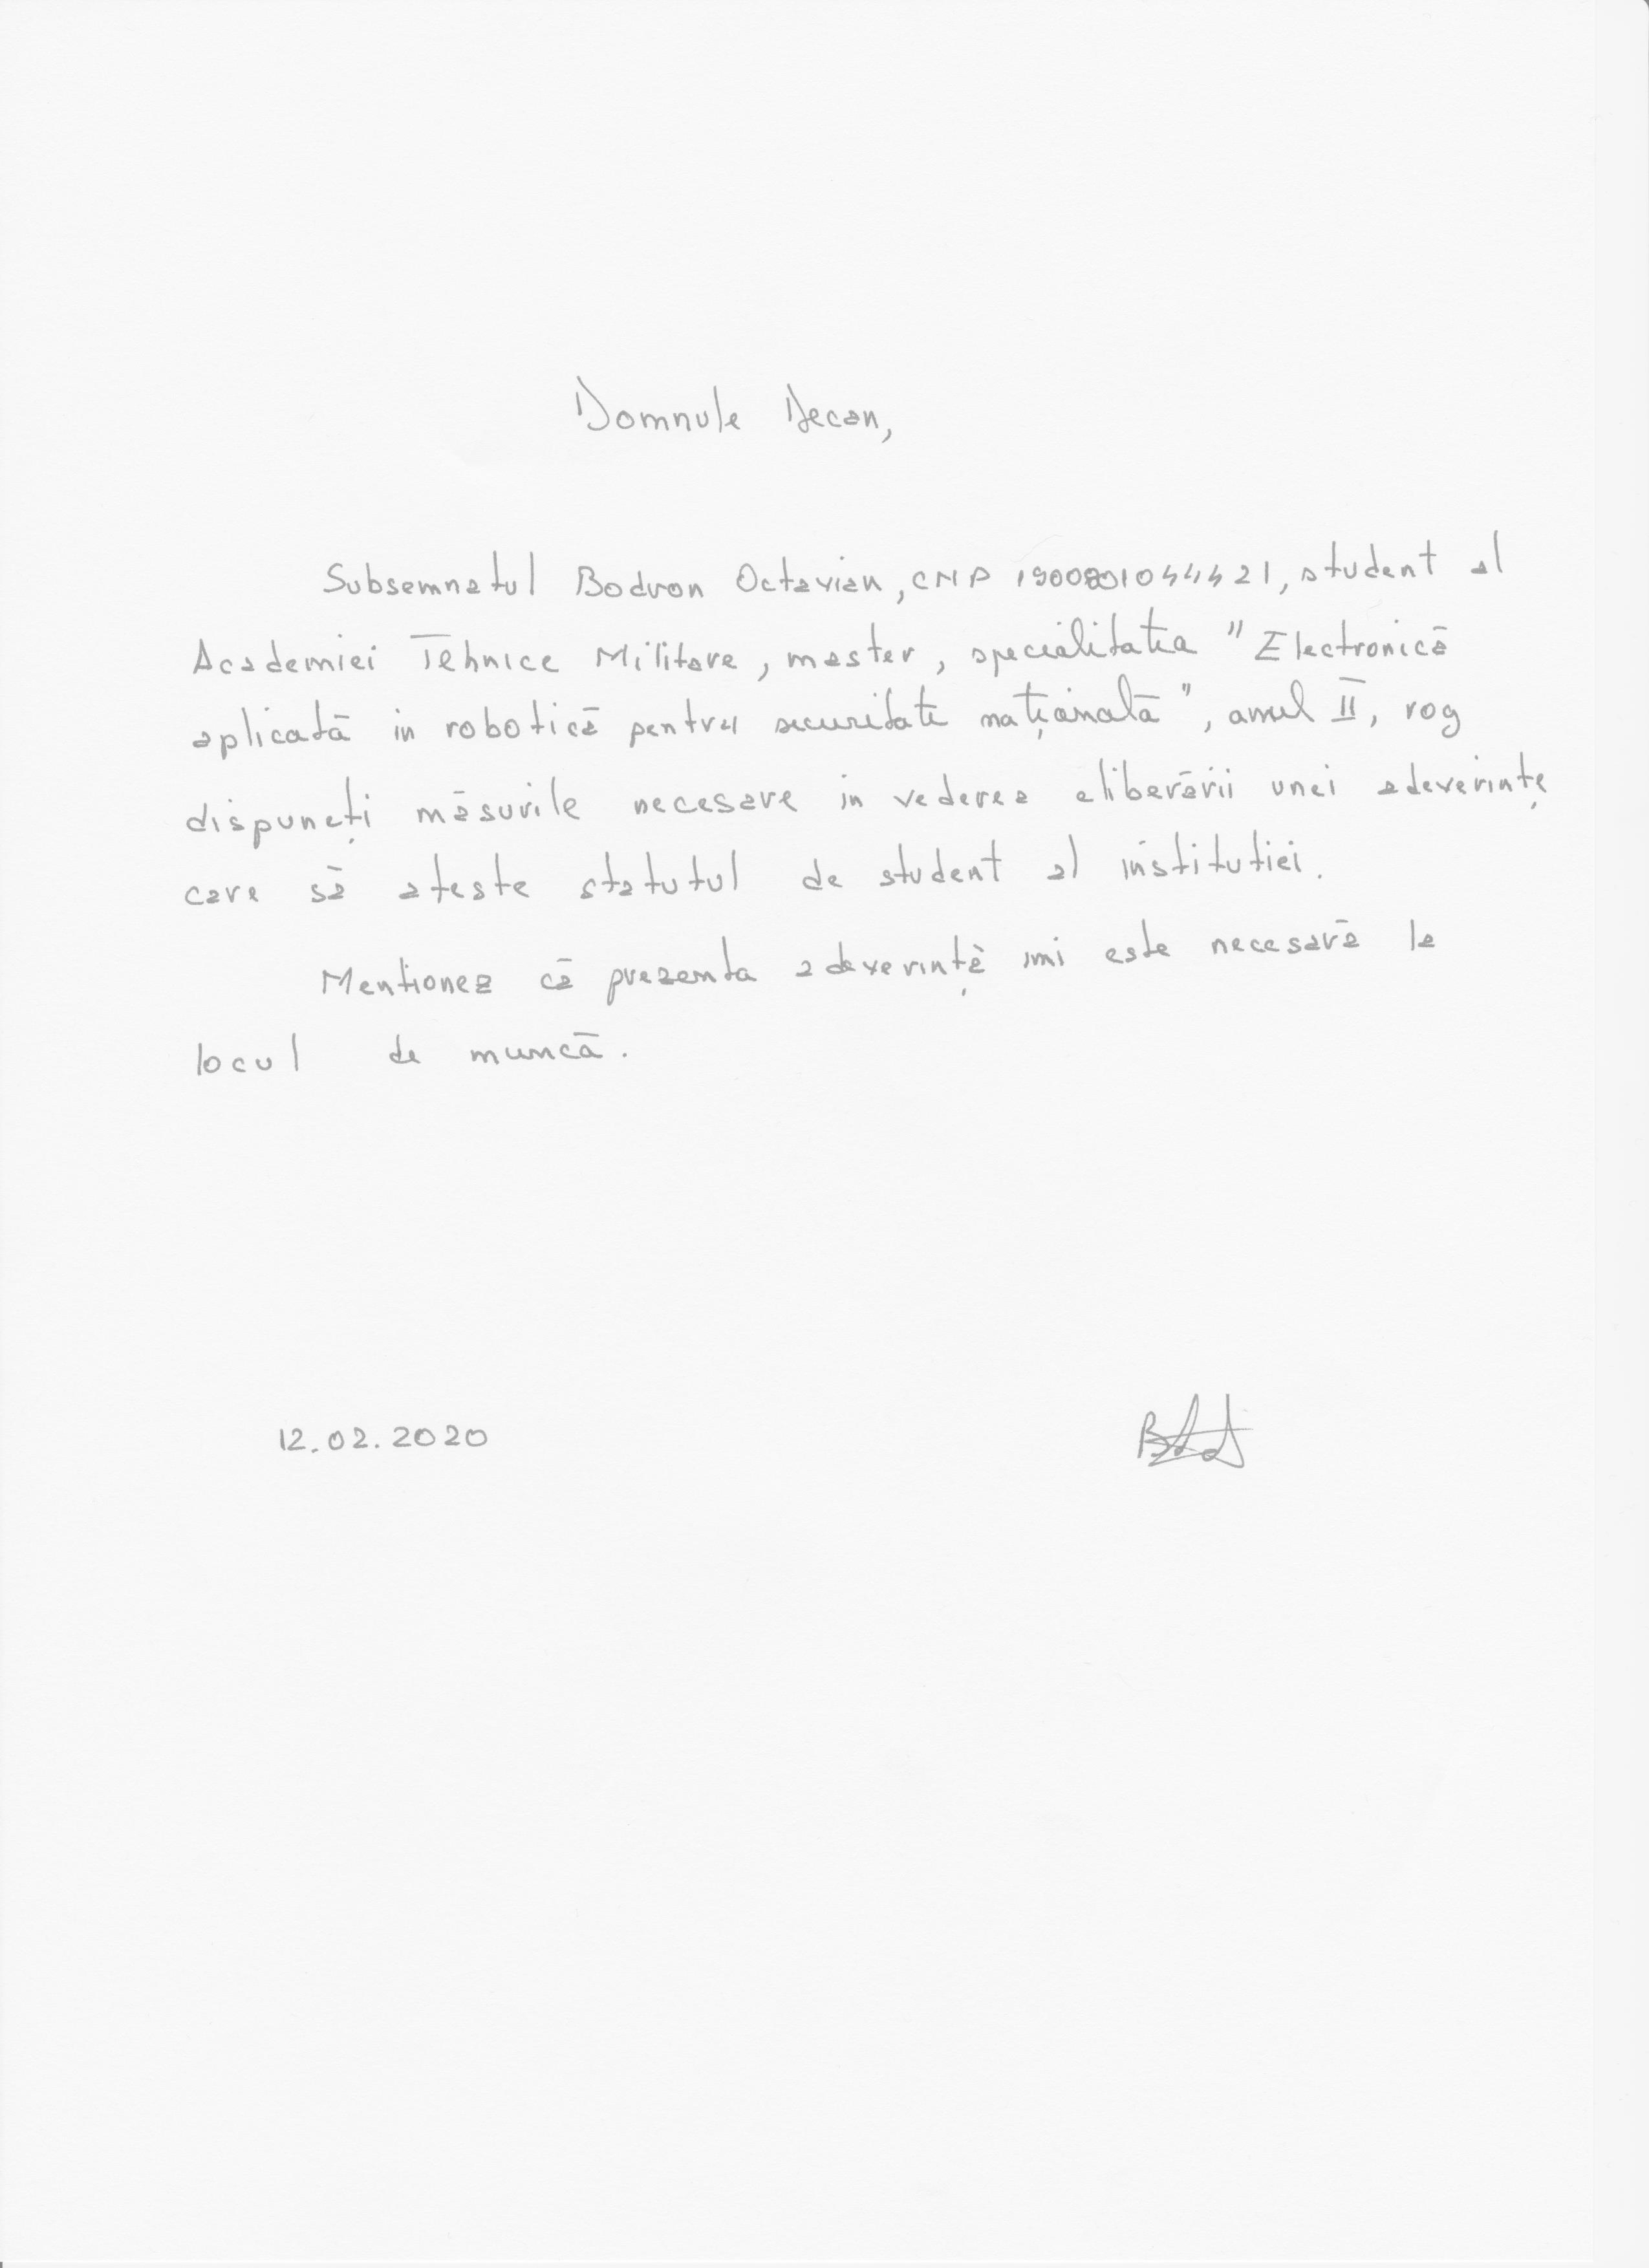 Domnule Decan,
Subsemnatul Bodron Octavian, CNP 1900801044421, student al
Academiei Tehnice Militare, master, specialitatea "Electronică
aplicată in robotică pentru securitate națională", anul II, rog
dispuneți măsurile necesare in vederea eliberării unei adeverințe
care să ateste statutul de student al institutiei.
Mentionez că prezenta adeverință imi este necesară la
locul de muncă.
12.02.2020